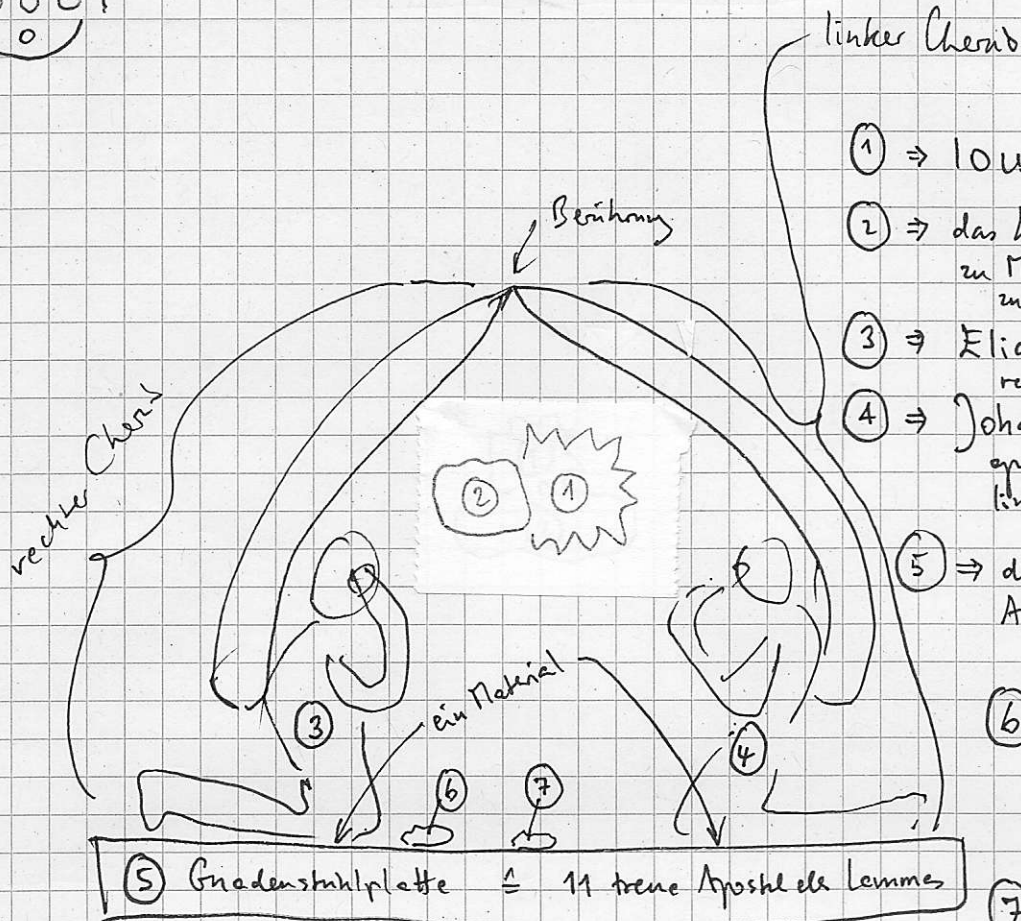 linker Cherub
① ⇒
② ⇒ das
zu
③ ⇒ Elia
④ ⇒ Joha
⑤ ⇒ d
A
Berührung
rechter Cherub
② ①
ein Material
③
④
⑥ ⑦
⑥
⑤ Gnadenstuhlplatte ≙ 11 treue Apostel des Lammes
⑦